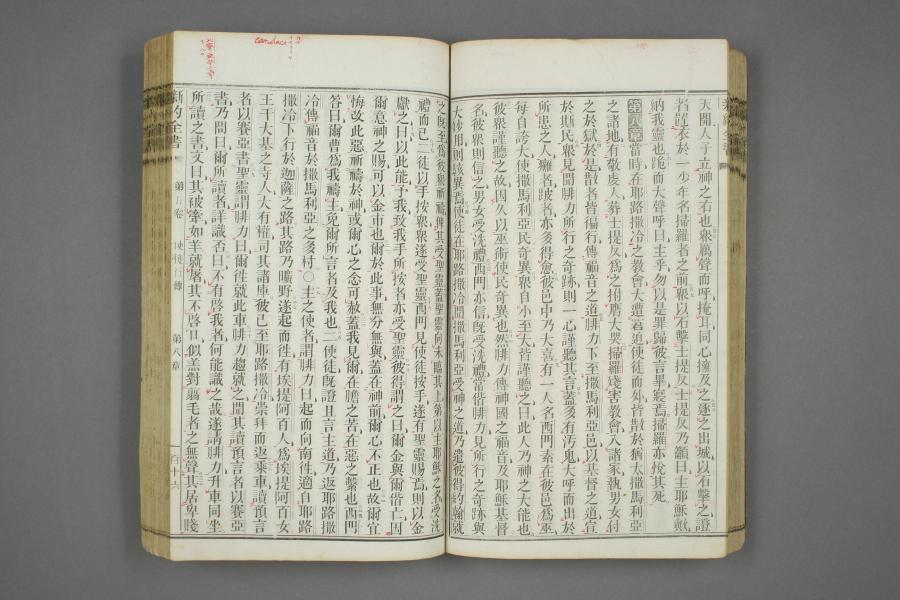 天開人子立神之右也衆厲聲而呼掩耳同心擁及之逐之出城以石擊之證
者置衣於一少年名掃羅者之前衆以石擊士提反士提反乃籲曰主耶穌歟
納我靈也跪而大聲呼曰主乎勿以是罪歸彼言畢寢焉掃羅亦悅其死
第八章當時在耶路撒冷之教會大遭窘迫使徒而外皆散於猶太撒馬利亞
之諸地有敬虔人葬士提反爲之拊膺大哭掃羅殘害教會入諸家執男女付
之於獄於是散者皆徧行傳福音之道腓力下至撒馬利亞邑以基督之道宣
於斯民衆見聞腓力所行之奇跡則一心謹聽其言蓋多有汚鬼大呼而出於
所患之人癱者跛者亦多得愈彼邑中乃大喜有一人名西門素在彼邑爲巫
每自誇大使撒馬利亞民奇異衆自小至大皆謹聽之曰此人乃神之大能也
彼衆謹聽之故因久以巫術使民奇異也然腓力傳神國之福音及耶穌基督
名彼衆則信之男女受洗禮西門亦信旣受洗禮當偕腓力見所行之奇跡與
大妙用則駭異焉使徒在耶路撒冷聞撒馬利亞受神之道乃遣彼得約翰就
之旣至爲彼衆祈禱俾其受聖靈蓋聖靈尚未臨其上第以主耶穌之名受洗
禮而已二徒以手按衆衆遂受聖靈西門見使徒按手遂有聖靈賜焉則以金
獻之曰以此能予我致我手所按者亦受聖靈彼得謂之曰爾金與爾偕亡因
爾意神之賜可以金市也爾於此事無分無與蓋在神前爾心不正也故爾宜
悔改此惡祈禱於神或爾心之念可赦蓋我見爾在膽之苦在惡之繫也西門
答曰爾曹爲我禱主免爾所言者及我也二使徒旣證且言主道乃返耶路撒
冷傳福音於撒馬利亞之多村○主之使者謂腓力曰起而向南徃適自耶路
撒冷下行於迦薩之路其路乃曠野遂起而徃有埃提阿百人爲埃提阿百女
王干大基之寺人大有權可其諸庫彼已至耶路撒冷崇拜而返乘車讀預言
者以賽亞書聖靈謂腓力曰爾徃就此車腓力趨就之聞其讀預言者以賽亞
書乃問曰爾所讀者詳識否曰不有啓我者何能識之哉遂請腓力升車同坐
所讀之書文曰其被牽如羊就屠其不啓口似羔對翦毛者之無聲其居卑賤
新約全書 第五卷 使徒行傳 第八章 百十六
candace